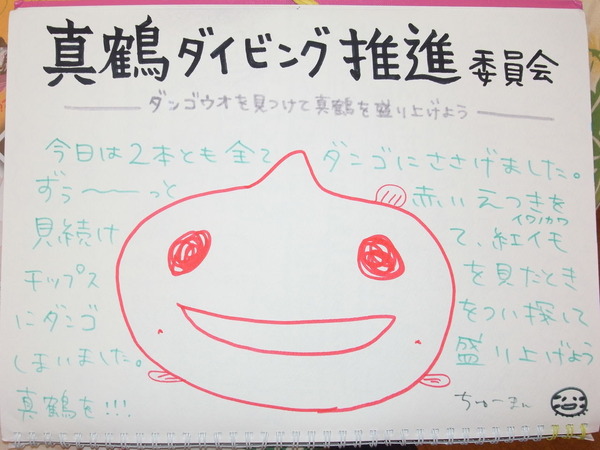 真鶴ダイビング推進委員会
ダンゴウオを見つけて真鶴を盛り上げよう
今日は2本とも全て ダンゴにささげました。
ずぅ〜〜っと 赤いえつきを
イワノカワ
見続け て、紅イモ
チップス を見たとき
にダンゴ をつい探して
しまいました。 盛り上げよう
真鶴を!!!